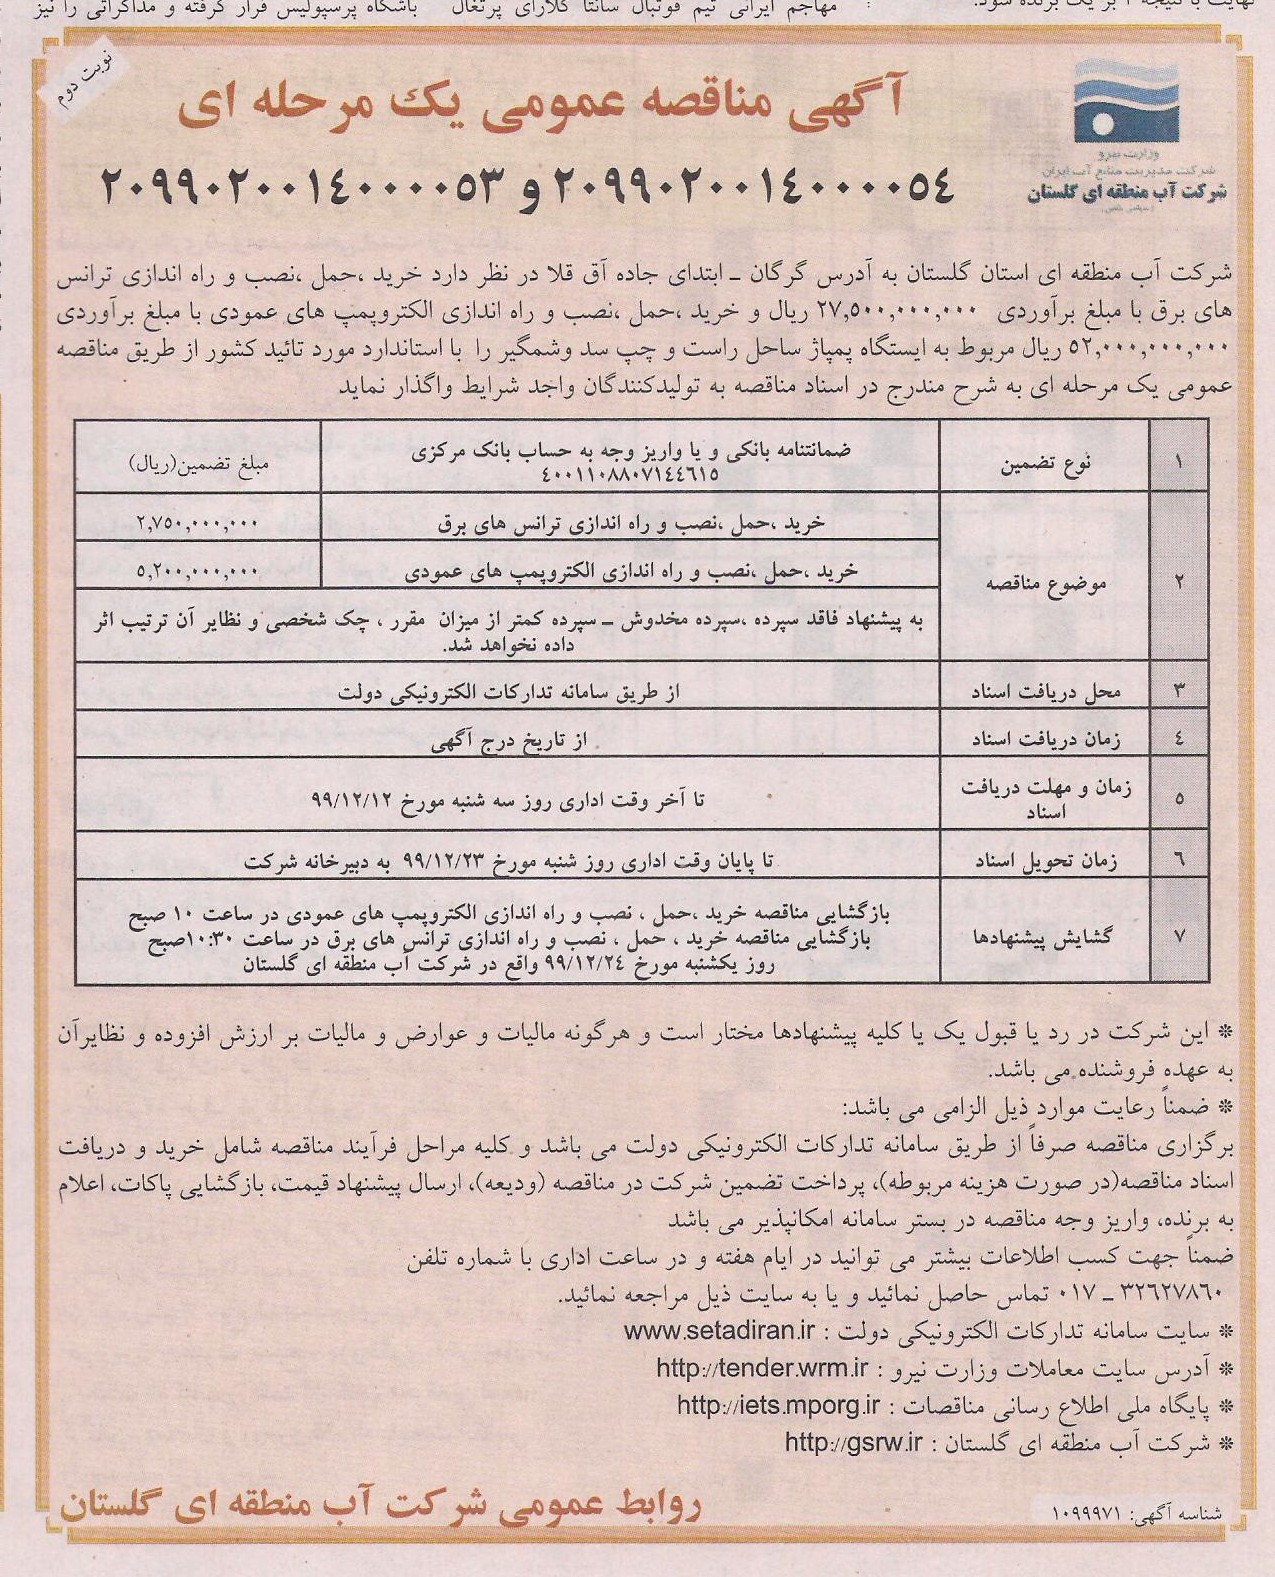 نهایت با نتیجه ۲ بر یک برنده شود.
مهاجم ایرانی تیم فوتبال سانتا کلارای پرتغال
باشگاه پرسپولیس قرار گرفته و مذاکراتی را نیز
نوبت دوم
وزارت نیرو
شرکت مدیریت منابع آب ایران
شرکت آب منطقه ای گلستان
(سهامی خاص)
آگهی مناقصه عمومی یک مرحله ای
۲۰۹۹۰۲۰۰۱٤۰۰۰۰٥٤ و ۲۰۹۹۰۲۰۰۱٤۰۰۰۰٥۳
شرکت آب منطقه ای استان گلستان به آدرس گرگان ـ ابتدای جاده آق قلا در نظر دارد خرید ،حمل ،نصب و راه اندازی ترانس
های برق با مبلغ برآوردی ۲۷,٥۰۰,۰۰۰,۰۰۰ ریال و خرید ،حمل ،نصب و راه اندازی الکتروپمپ های عمودی با مبلغ برآوردی
٥۲,۰۰۰,۰۰۰,۰۰۰ ریال مربوط به ایستگاه پمپاژ ساحل راست و چپ سد وشمگیر را با استاندارد مورد تائید کشور از طریق مناقصه
عمومی یک مرحله ای به شرح مندرج در اسناد مناقصه به تولیدکنندگان واجد شرایط واگذار نماید
۱ نوع تضمین ضمانتنامه بانکی و یا واریز وجه به حساب بانک مرکزی مبلغ تضمین(ریال)
٤۰۰۱۱۰۸۸۰۷۱٤٤٦۱٥
خرید ،حمل ،نصب و راه اندازی ترانس های برق ۲,۷٥۰,۰۰۰,۰۰۰
۲ موضوع مناقصه خرید ،حمل ،نصب و راه اندازی الکتروپمپ های عمودی ٥,۲۰۰,۰۰۰,۰۰۰
به پیشنهاد فاقد سپرده ،سپرده مخدوش ـ سپرده کمتر از میزان مقرر ، چک شخصی و نظایر آن ترتیب اثر
داده نخواهد شد.
۳ محل دریافت اسناد از طریق سامانه تدارکات الکترونیکی دولت
٤ زمان دریافت اسناد از تاریخ درج آگهی
٥ زمان و مهلت دریافت اسناد تا آخر وقت اداری روز سه شنبه مورخ ۹۹/۱۲/۱۲
٦ زمان تحویل اسناد تا پایان وقت اداری روز شنبه مورخ ۹۹/۱۲/۲۳ به دبیرخانه شرکت
۷ گشایش پیشنهادها بازگشایی مناقصه خرید ،حمل ، نصب و راه اندازی الکتروپمپ های عمودی در ساعت ۱۰ صبح
بازگشایی مناقصه خرید ، حمل ، نصب و راه اندازی ترانس های برق در ساعت ۱۰:۳۰صبح
روز یکشنبه مورخ ۹۹/۱۲/۲٤ واقع در شرکت آب منطقه ای گلستان
* این شرکت در رد یا قبول یک یا کلیه پیشنهادها مختار است و هرگونه مالیات و عوارض و مالیات بر ارزش افزوده و نظایرآن
به عهده فروشنده می باشد.
* ضمناً رعایت موارد ذیل الزامی می باشد:
برگزاری مناقصه صرفاً از طریق سامانه تدارکات الکترونیکی دولت می باشد و کلیه مراحل فرآیند مناقصه شامل خرید و دریافت
اسناد مناقصه(در صورت هزینه مربوطه)، پرداخت تضمین شرکت در مناقصه (ودیعه)، ارسال پیشنهاد قیمت، بازگشایی پاکات، اعلام
به برنده، واریز وجه مناقصه در بستر سامانه امکانپذیر می باشد
ضمناً جهت کسب اطلاعات بیشتر می توانید در ایام هفته و در ساعت اداری با شماره تلفن
۳۲٦۲۷۸٦۰ ـ ۰۱۷ تماس حاصل نمائید و یا به سایت ذیل مراجعه نمائید.
* سایت سامانه تدارکات الکترونیکی دولت : www.setadiran.ir
* آدرس سایت معاملات وزارت نیرو : http://tender.wrm.ir
* پایگاه ملی اطلاع رسانی مناقصات : http://iets.mporg.ir
* شرکت آب منطقه ای گلستان : http://gsrw.ir
شناسه آگهی: ۱۰۹۹۹۷۱
روابط عمومی شرکت آب منطقه ای گلستان